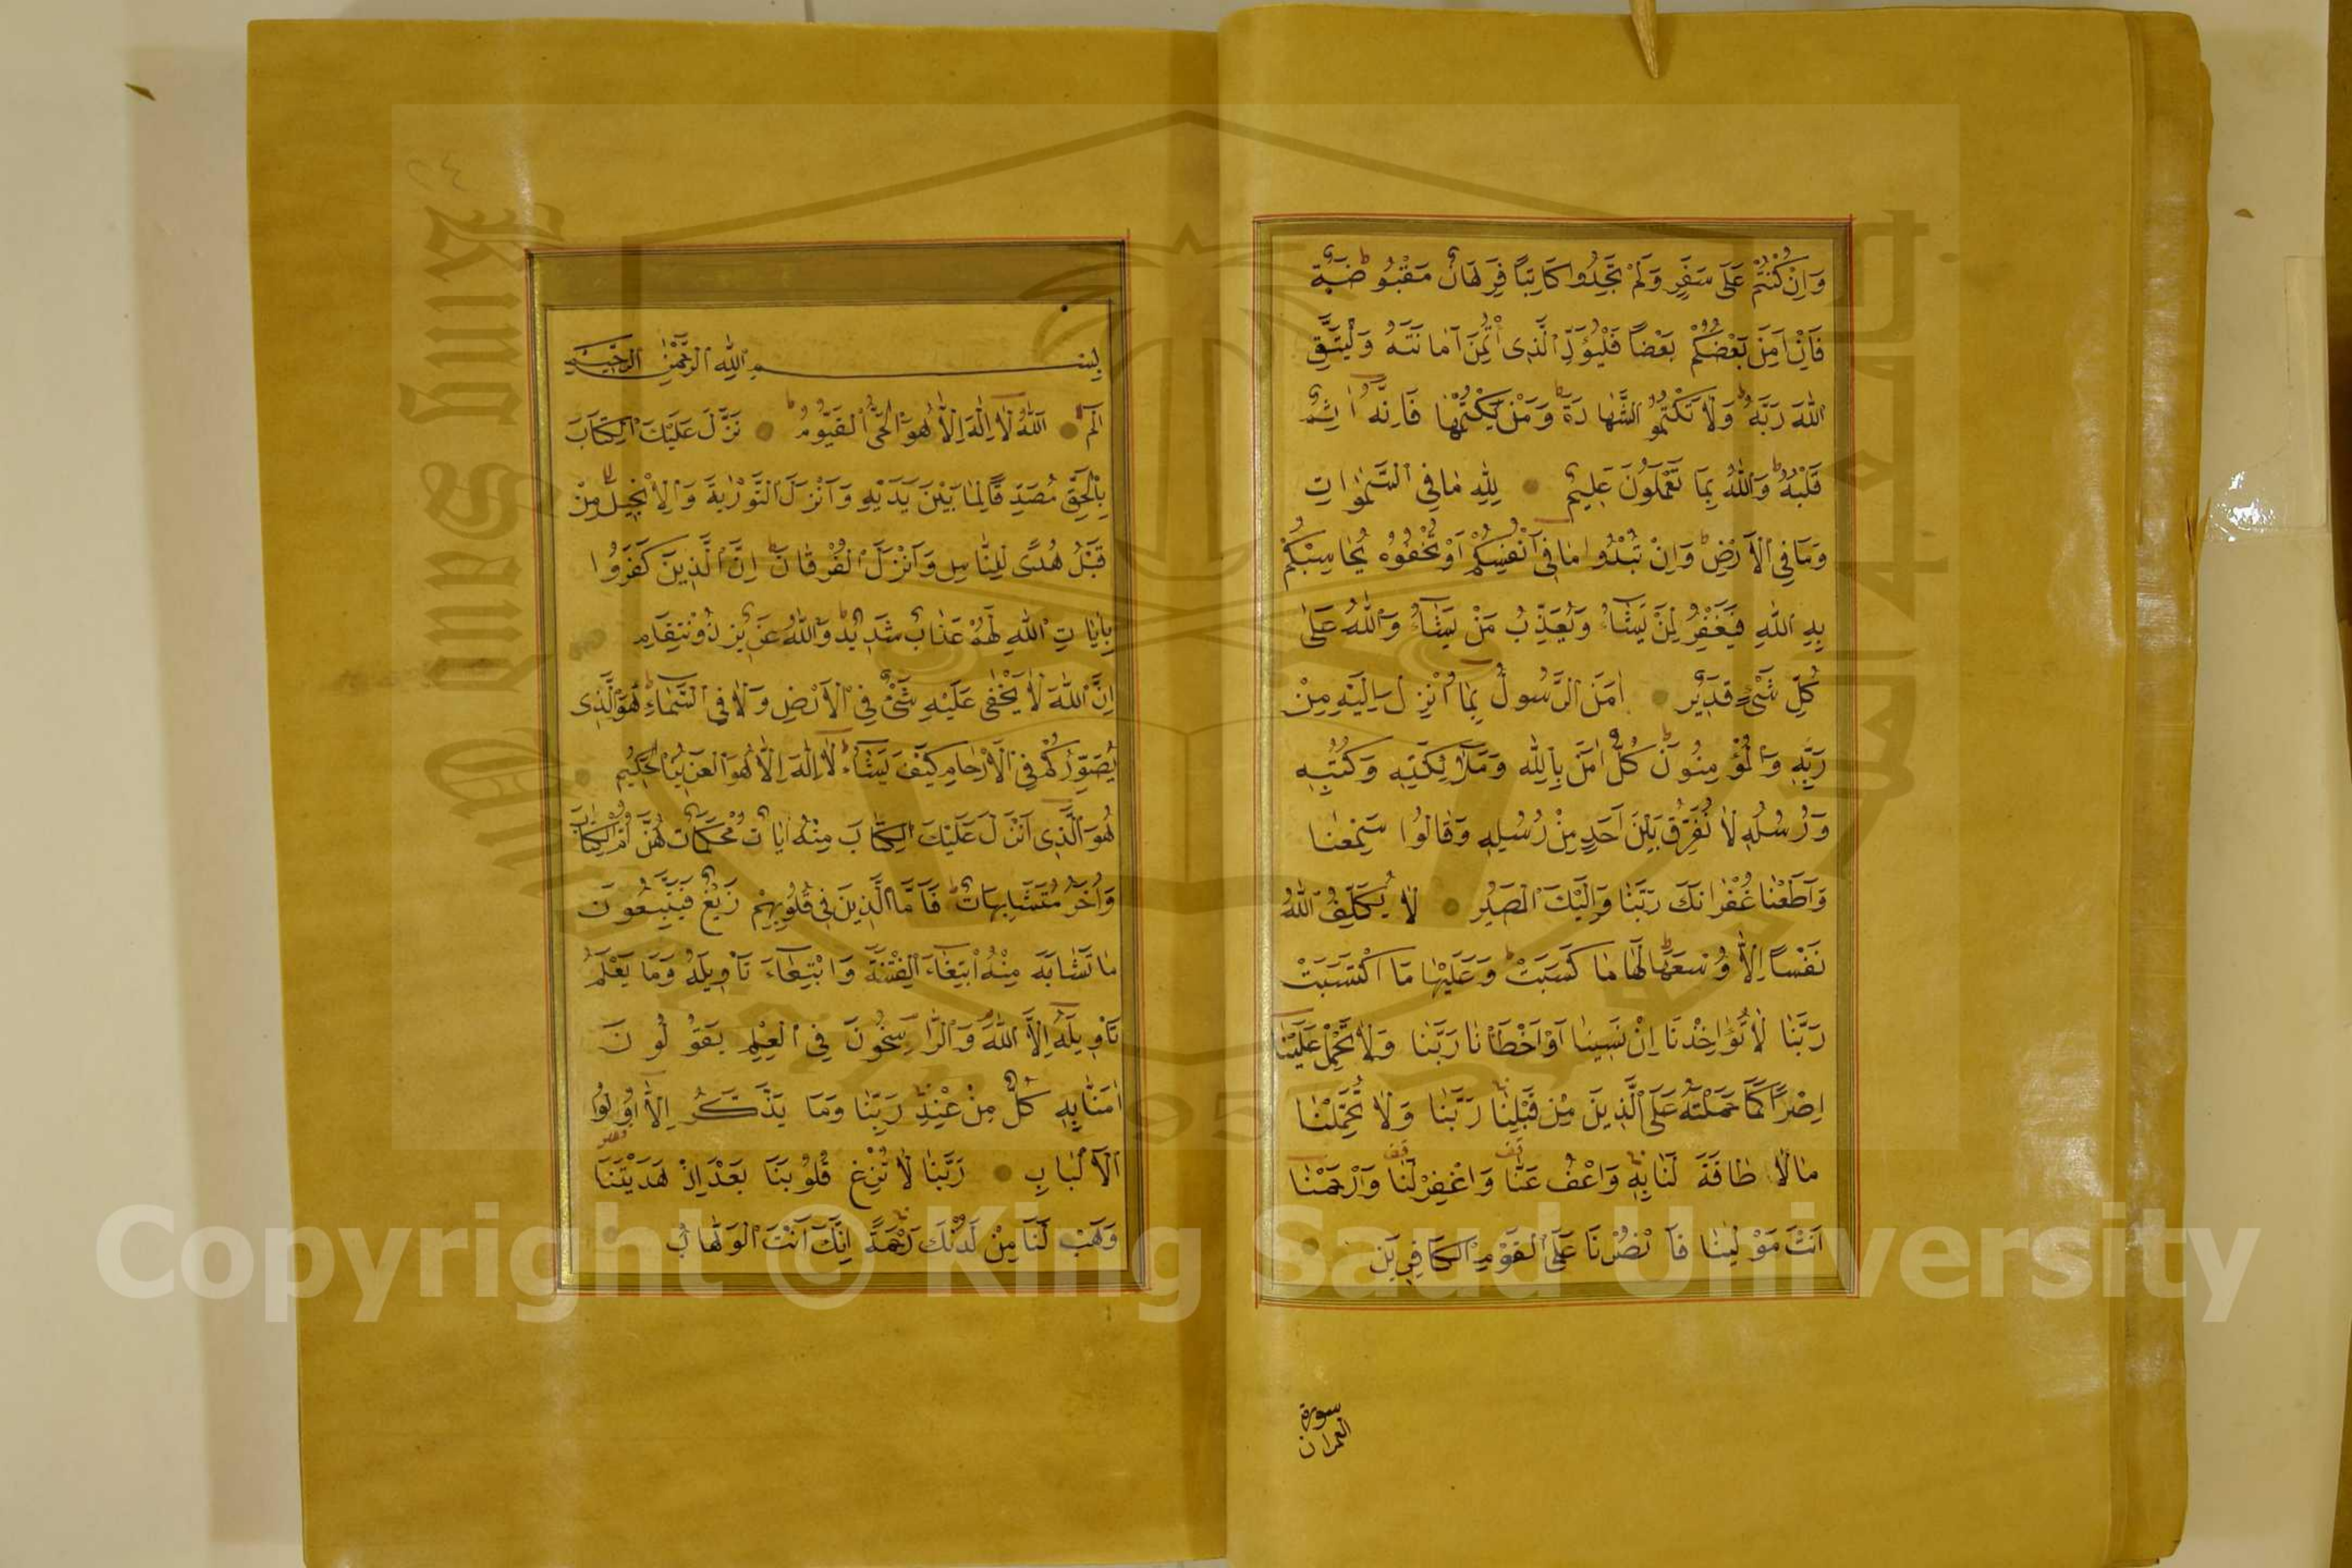 وَاِنْ كُنْتُمْ عَلٰى سَفَرٍ وَلَمْ تَجِدُوا كَاتِبًا فَرِهَانٌ مَقْبُوضَةٌ
فَاِنْ اَمِنَ بَعْضُكُمْ بَعْضًا فَلْيُؤَدِّ الَّذِى اؤْتُمِنَ اَمَانَتَهُ وَلْيَتَّقِ
اللّٰهَ رَبَّهُ وَلَا تَكْتُمُوا الشَّهَادَةَ وَمَنْ يَكْتُمْهَا فَاِنَّهُ اٰثِمٌ
قَلْبُهُ وَاللّٰهُ بِمَا تَعْمَلُونَ عَلِيمٌ لِلّٰهِ مَا فِى السَّمٰوَاتِ
وَمَا فِى الْاَرْضِ وَاِنْ تُبْدُوا مَا فِى اَنْفُسِكُمْ اَوْ تُخْفُوهُ يُحَاسِبْكُمْ
بِهِ اللّٰهِ فَيَغْفِرُ لِمَنْ يَشَاءُ وَيُعَذِّبُ مَنْ يَشَاءُ وَاللّٰهُ عَلٰى
كُلِّ شَىْءٍ قَدِيرٌ اٰمَنَ الرَّسُولُ بِمَا اُنْزِلَ اِلَيْهِ مِنْ
رَبِّهِ وَالْمُؤْمِنُونَ كُلٌّ اٰمَنَ بِاللّٰهِ وَمَلٰئِكَتِهِ وَكُتُبِهِ
وَرُسُلِهِ لَا نُفَرِّقُ بَيْنَ اَحَدٍ مِنْ رُسُلِهِ وَقَالُوا سَمِعْنَا
وَاَطَعْنَا غُفْرَانَكَ رَبَّنَا وَاِلَيْكَ الْمَصِيرُ لَا يُكَلِّفُ اللّٰهُ
نَفْسًا اِلَّا وُسْعَهَا لَهَا مَا كَسَبَتْ وَعَلَيْهَا مَا اكْتَسَبَتْ
رَبَّنَا لَا تُؤَاخِذْنَا اِنْ نَسِينَا اَوْ اَخْطَأْنَا رَبَّنَا وَلَا تَحْمِلْ عَلَيْنَا
اِصْرًا كَمَا حَمَلْتَهُ عَلَى الَّذِينَ مِنْ قَبْلِنَا رَبَّنَا وَلَا تُحَمِّلْنَا
مَا لَا طَاقَةَ لَنَا بِهِ وَاعْفُ عَنَّا وَاغْفِرْ لَنَا وَارْحَمْنَا
اَنْتَ مَوْلٰينَا فَانْصُرْنَا عَلَى الْقَوْمِ الْكَافِرِينَ
سورة
العمران
بِسْمِ اللّٰهِ الرَّحْمٰنِ الرَّحِيمِ
الٓمٓ اَللّٰهُ لَا اِلٰهَ اِلَّا هُوَ الْحَىُّ الْقَيُّومُ نَزَّلَ عَلَيْكَ الْكِتَابَ
بِالْحَقِّ مُصَدِّقًا لِمَا بَيْنَ يَدَيْهِ وَاَنْزَلَ التَّوْرٰيةَ وَالْاِنْجِيلَ مِنْ
قَبْلُ هُدًى لِلنَّاسِ وَاَنْزَلَ الْفُرْقَانَ اِنَّ الَّذِينَ كَفَرُوا
بِاٰيَاتِ اللّٰهِ لَهُمْ عَذَابٌ شَدِيدٌ وَاللّٰهُ عَزِيزٌ ذُو انْتِقَامٍ
اِنَّ اللّٰهَ لَا يَخْفٰى عَلَيْهِ شَىْءٌ فِى الْاَرْضِ وَلَا فِى السَّمَاءِ هُوَ الَّذِى
يُصَوِّرُكُمْ فِى الْاَرْحَامِ كَيْفَ يَشَاءُ لَا اِلٰهَ اِلَّا هُوَ الْعَزِيزُ الْحَكِيمُ
هُوَ الَّذِى اَنْزَلَ عَلَيْكَ الْكِتَابَ مِنْهُ اٰيَاتٌ مُحْكَمَاتٌ هُنَّ اُمُّ الْكِتَابِ
وَاُخَرُ مُتَشَابِهَاتٌ فَاَمَّا الَّذِينَ فِى قُلُوبِهِمْ زَيْغٌ فَيَتَّبِعُونَ
مَا تَشَابَهَ مِنْهُ ابْتِغَاءَ الْفِتْنَةِ وَابْتِغَاءَ تَأْوِيلِهِ وَمَا يَعْلَمُ
تَأْوِيلَهُ اِلَّا اللّٰهُ وَالرَّاسِخُونَ فِى الْعِلْمِ يَقُولُونَ
اٰمَنَّا بِهِ كُلٌّ مِنْ عِنْدِ رَبِّنَا وَمَا يَذَّكَّرُ اِلَّا اُولُوا
الْاَلْبَابِ رَبَّنَا لَا تُزِغْ قُلُوبَنَا بَعْدَ اِذْ هَدَيْتَنَا
وَهَبْ لَنَا مِنْ لَدُنْكَ رَحْمَةً اِنَّكَ اَنْتَ الْوَهَّابُ
Copyright © King Saud University